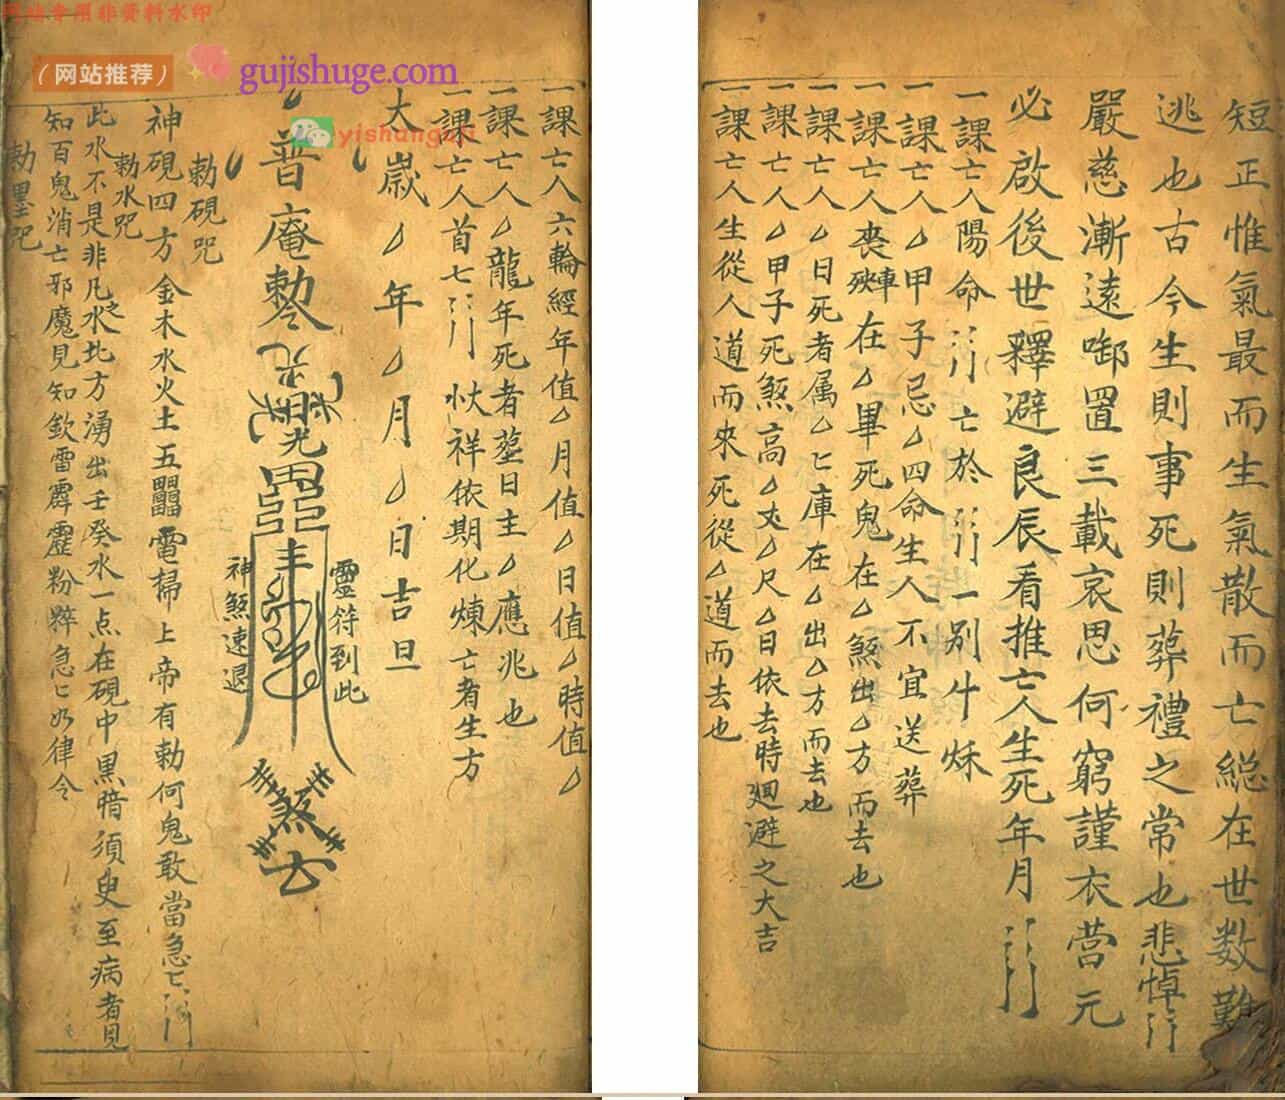 网站专用非资料水印
（网站推荐）
gujishuge.com
yishanguji
短正惟氣最而生氣散而亡総在世数難
逃也古今生則事死則葬禮之常也悲悼
嚴慈漸遠啣置三載哀思何窮謹衣营元
必啟後世釋避良辰看推亡人生死年月
一課亡人陽命亡於一别
一課亡人厶甲子忌厶四命生人不宜送葬
一課亡人喪車殃在厶畢死鬼在厶煞出厶方而去也
一課亡人厶日死者属厶匕庫在厶出厶方而去也
一課亡人厶甲子死煞高厶丈厶尺厶日依去時廻避之大吉
一課亡人生從人道而來死從厶道而去也
一課亡人六輪經年值厶月值厶日值厶時值厶
一課亡人厶龍年死者墓日主厶應兆也
一課亡人首七祥依期化煉亡者生方
大歲厶年厶月厶日吉旦
靈符到此
普庵勅令
煞去
神煞速退
勅硯咒
神硯四方金木水火土五電掃上帝有勅何鬼敢當急匕
勅水咒
此水不是非凡之水北方湧出壬癸水一点在硯中黑暗須臾至病者見
知百鬼消亡邪魔見知欽雷霹靂粉粹急匕如律令
勅墨咒